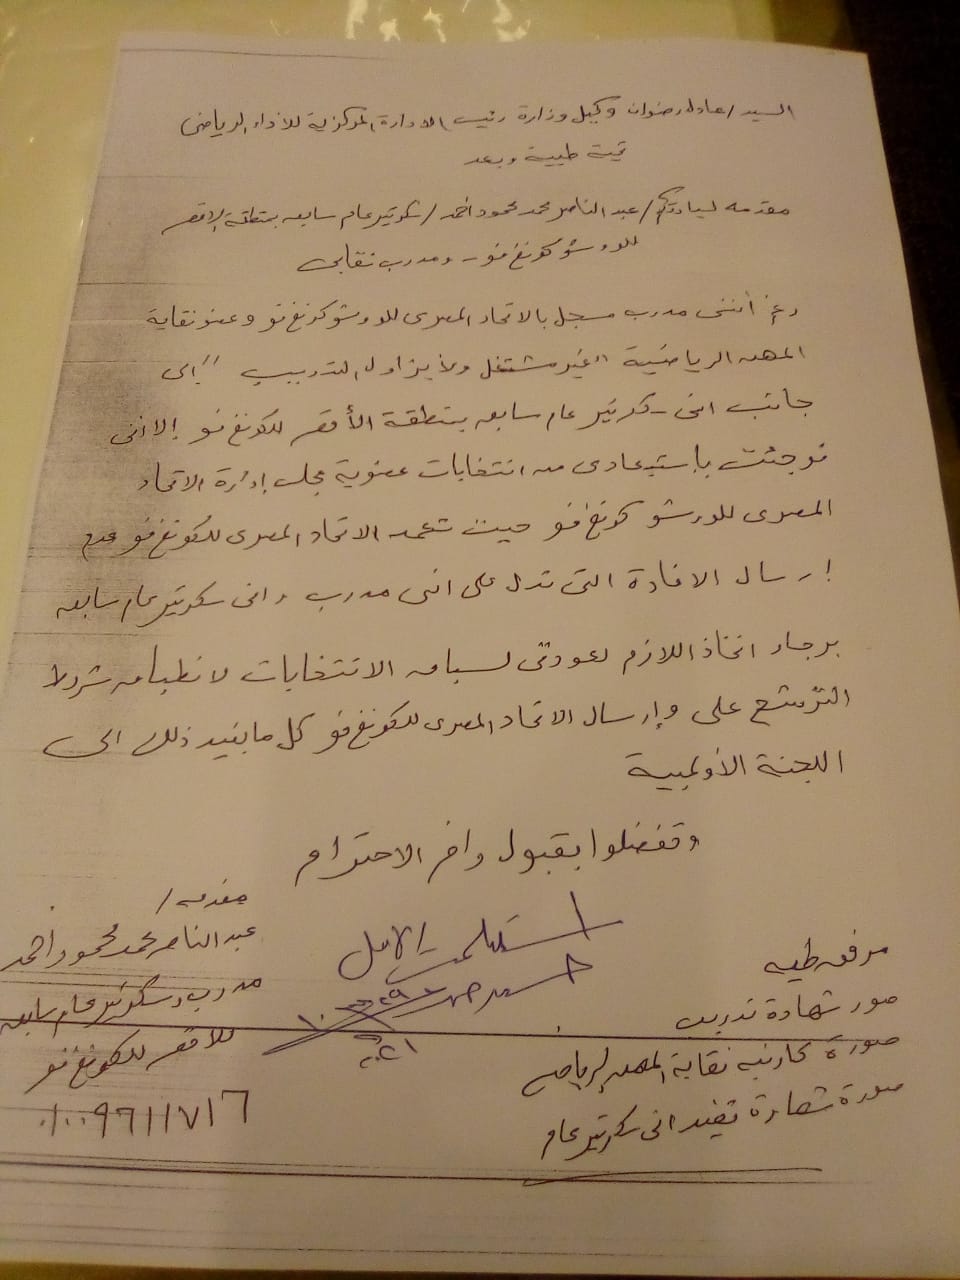 السيد / عادل رضوان وكيل وزارة رئيس الادارة المركزية للأداء الرياضى
تحية طيبة وبعد
مقدمه لسيادتكم / عبد الناصر محمد محمود احمد / سكرتير عام سابق بمنطقة الاقصر
للووشو كونغ فو - ومدرب نقابى
رغم أننى مدرب مسجل بالاتحاد المصرى للووشو كونغ فو وعضو نقابة
المهن الرياضية " غير مشتغل ولا يزاول التدريب " إلى
جانب انى سكرتير عام سابق بمنطقة الأقصر للكونغ فو إلا اننى
فوجئت بإستبعادى من انتخابات عضوية مجلس إدارة الاتحاد
المصرى للووشو كونغ فو حيث تعمد الاتحاد المصرى للكونغ فو عدم
إرسال الافادة التى تدل على انى مدرب وانى سكرتير عام سابق
برجاء اتخاذ اللازم لعودتى لسباق الانتخابات لانطباق شروط
الترشح على وإرسال الاتحاد المصرى للكونغ فو كل ما يفيد ذلك الى
اللجنة الأولمبية
وتفضلوا بقبول وافر الاحترام
مقدمه /
عبد الناصر محمد محمود احمد
مدرب وسكرتير عام سابق
للاقصر للكونغ فو
٠١٠٠٩٦١١٧١٦
استلمت الاصل
مرفق طيه
صور شهادة تدريب
صورة كارنيه نقابة المهن الرياضية
صورة شهادة تفيد انى سكرتير عام